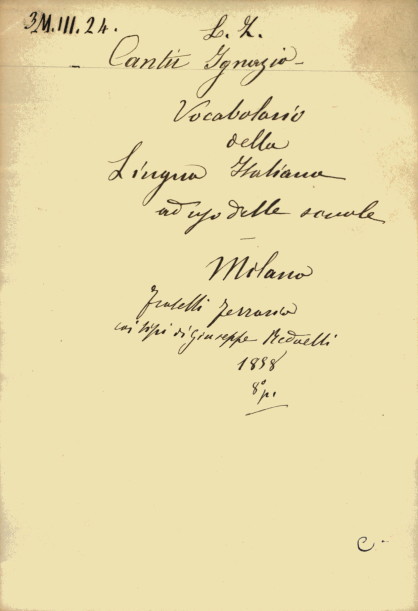 3M.III.24.
L. I.
Cantù Ignazio
Vocabolario
della
Lingua Italiana
ad uso delle scuole
Milano
Fratelli Ferrario
coi tipi di Giuseppe Redaelli
1858
8° p.
C.